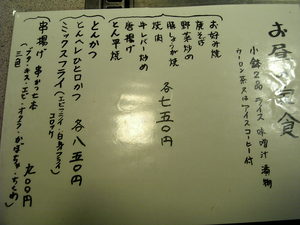 お昼定食
小鉢2品 ライス 味噌汁 漬物
ウーロン茶又はアイスコーヒー付
お好み焼
焼そば
野菜炒め
豚しょうが焼
焼肉
牛レバー炒め
唐揚げ
とん平焼
各七五〇円
とんかつ
とんヘレひと口カツ
ミックスフライ(エビ・ミンチ・白身フライ)
コロッケ
各八五〇円
串揚げ 串かつ七本
三色
ブタ・キス・エビ・オクラ・かぼちゃ・ちくわ
九〇〇円